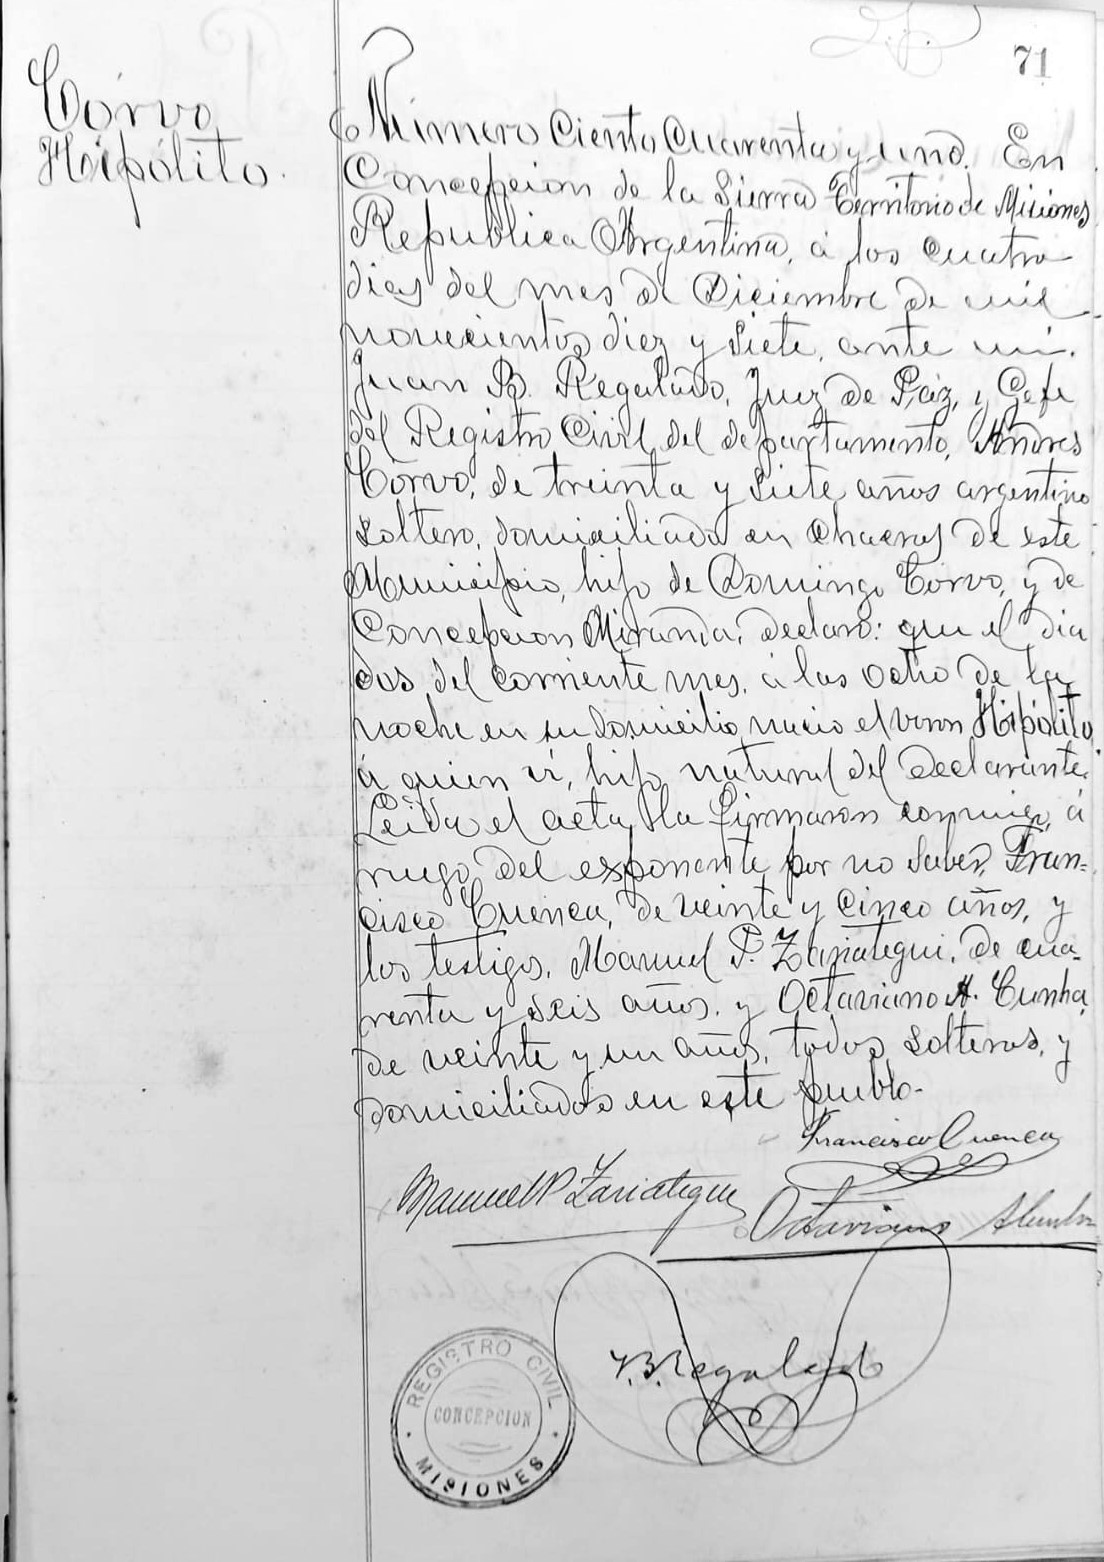 71
Córvo
Hipólito.
Número Ciento Cuarenta y uno. En
Concepcion de la Sierra Territorio de Misiones
Republica Argentina, á los cuatro
dias del mes de Diciembre de mil
novecientos diez y siete, ante mi.
Juan B. Regalado, Juez de Páz, y Gefe
del Registro Civil del departamento, Andres
Córvo, de treinta y siete años argentino
soltero, domiciliado en chacras de este
Municipio, hijo de Domingo Córvo, y de
Concepcion Miranda, declaró: que el dia
dos del corriente mes, á las ocho de la
noche en su domicilio nació el varon Hipólito
á quien ví, hijo natural del declarante.
Leida el acta, la firmaron conmigo, á
ruego del exponente por no saber, Fran=
cisco Cuenca, de veinte y cinco años, y
los testigos, Manuel P. Zariategui, de cua=
renta y seis años, y Octaviano A. Cunha,
de veinte y un años, todos solteros, y
domiciliados en este pueblo-
Francisco Cuenca
Manuel P Zariategui
Octaviano A Cunha
J.B. Regalado
REGISTRO CIVIL
CONCEPCION
MISIONES